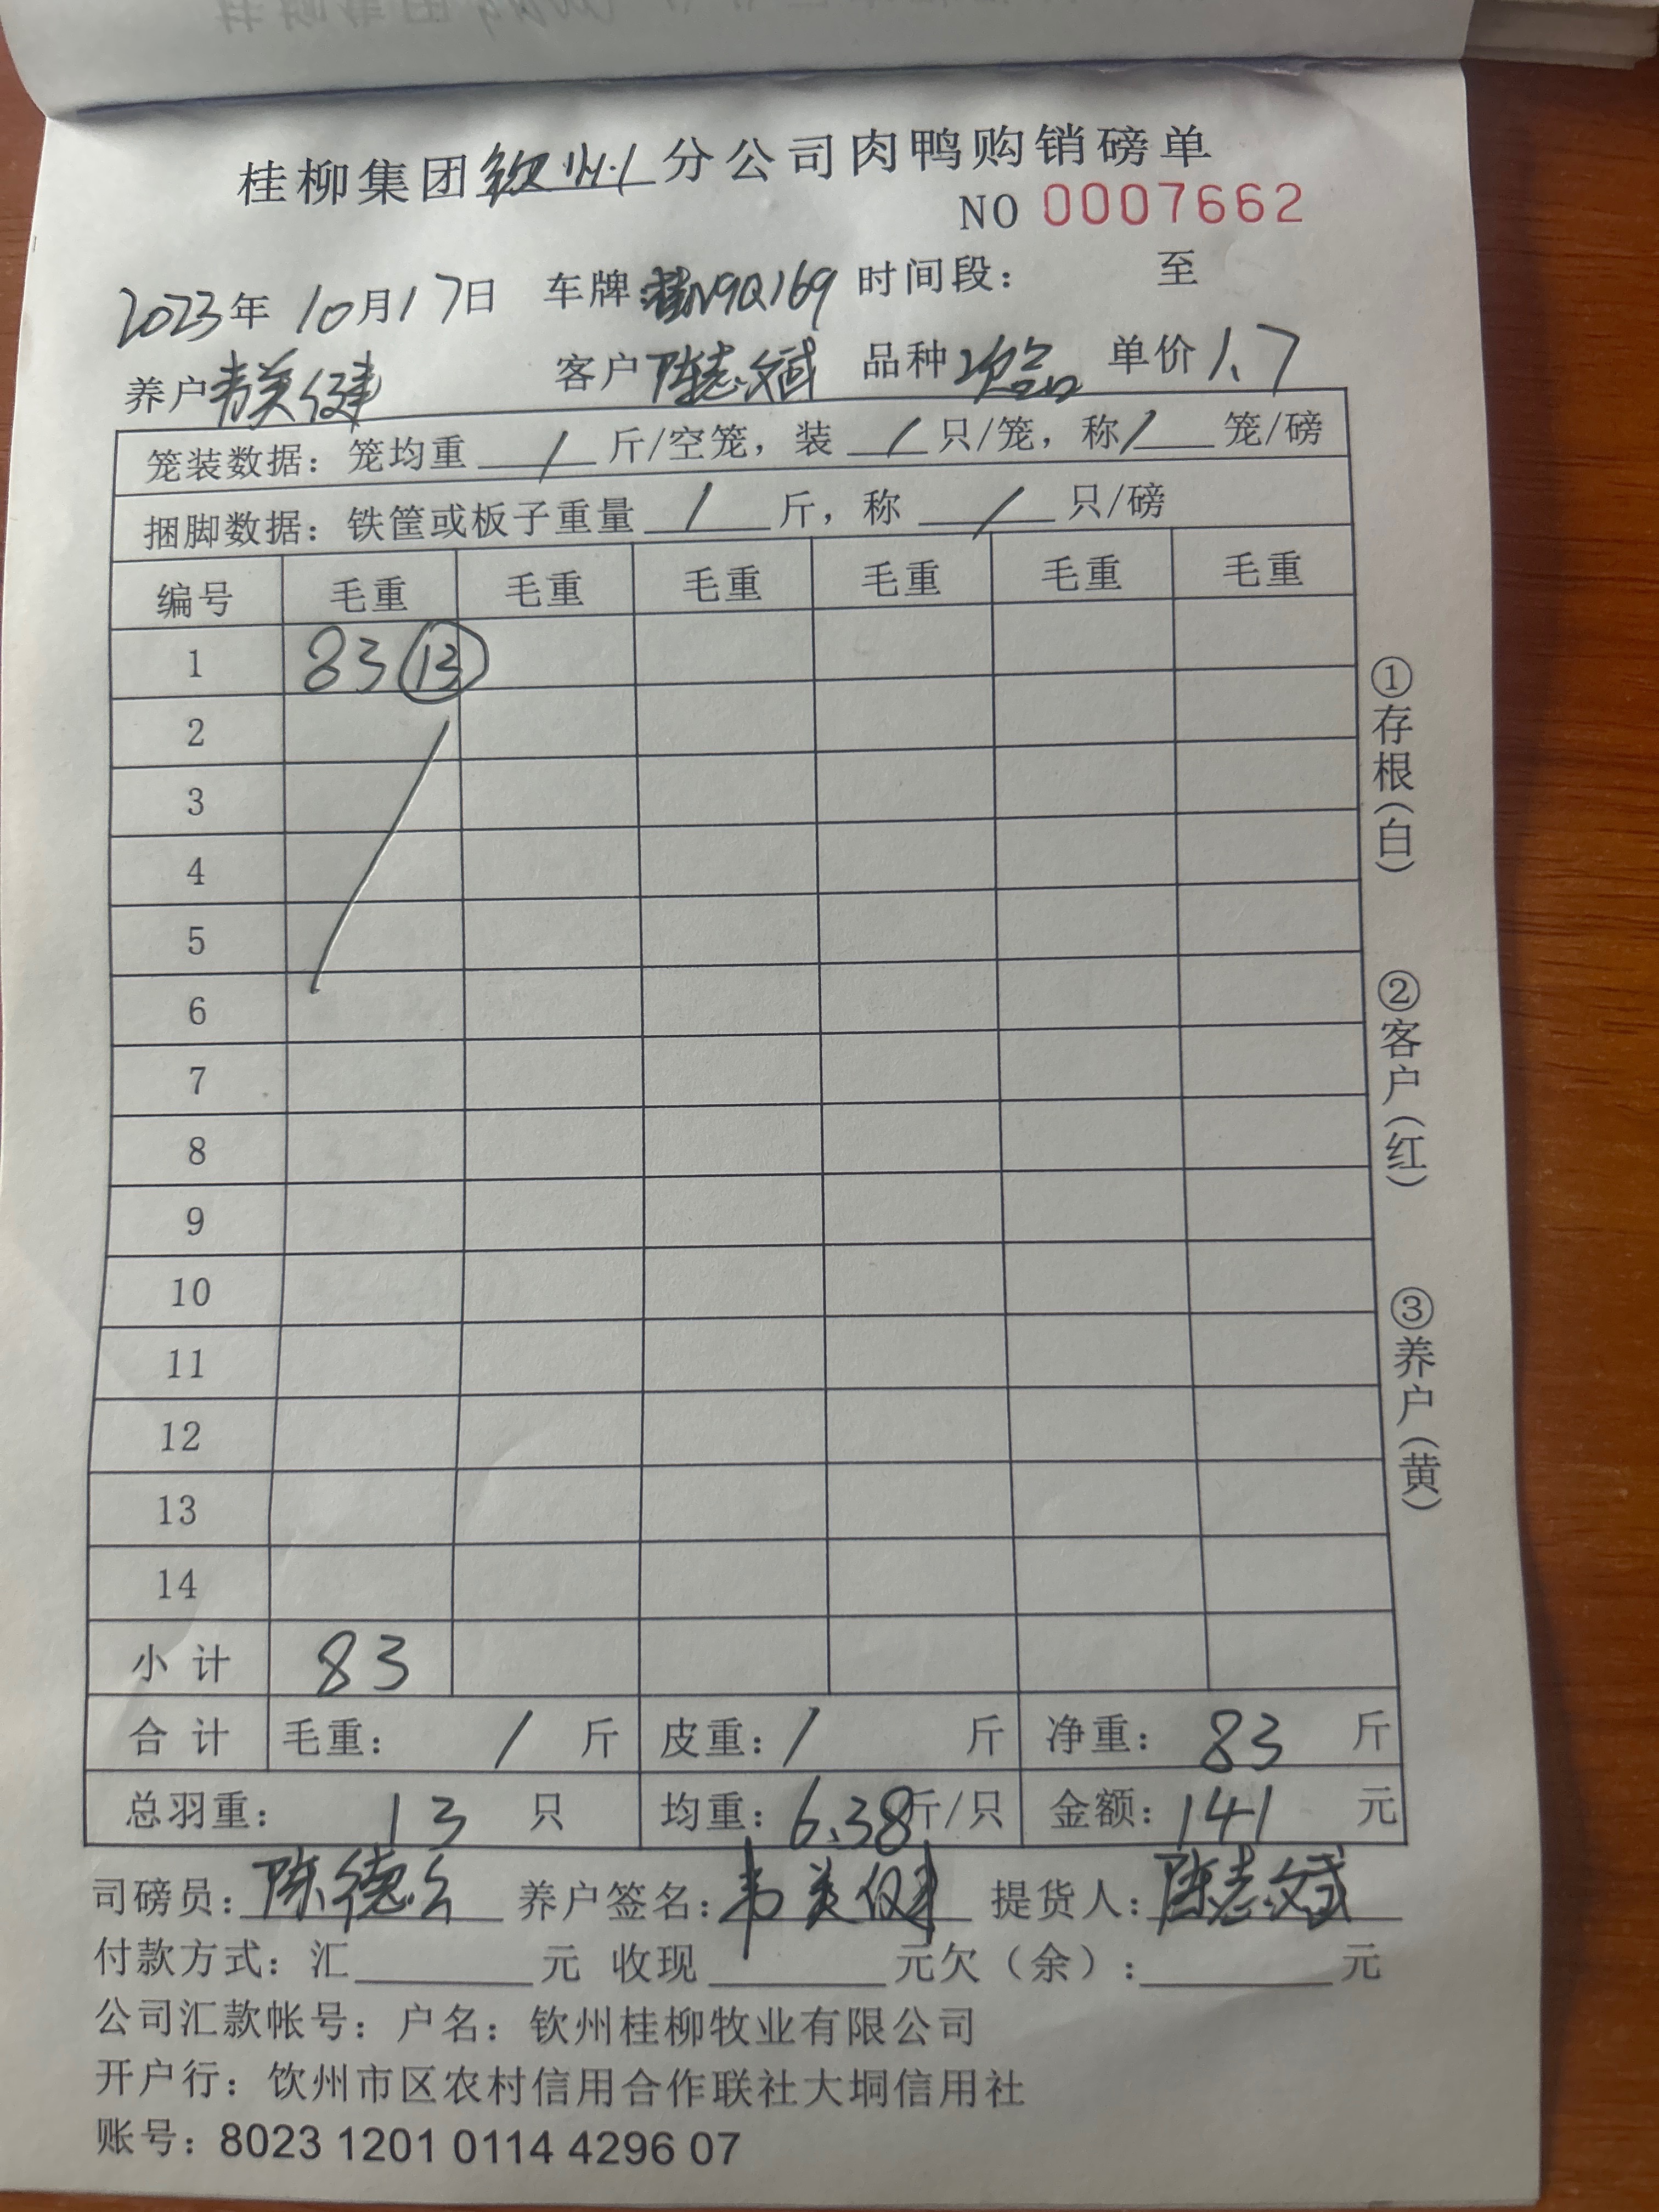 桂柳集团钦州分公司肉鸭购销磅单
NO 0007662
2023年 10月17日 车牌:桂N9Q169 时间段: 至
养户韦美健 客户陈志斌 品种次品 单价1.7
笼装数据: 笼均重 / 斤/空笼, 装 / 只/笼, 称/ 笼/磅
捆脚数据: 铁筐或板子重量 / 斤, 称 / 只/磅
编号 毛重 毛重 毛重 毛重 毛重 毛重
1 83 ⑬
2
3
4
5
6
7
8
9
10
11
12
13
14
小计 83
合计 毛重: / 斤 皮重: / 斤 净重: 83 斤
总羽重: 13 只 均重: 6.38斤/只 金额: 141 元
司磅员: 陈德 养户签名: 韦美健 提货人: 陈志斌
付款方式: 汇 元 收现 元欠(余): 元
公司汇款帐号: 户名: 钦州桂柳牧业有限公司
开户行: 饮州市区农村信用合作联社大垌信用社
账号: 8023 1201 0114 4296 07
①存根(白)
②客户(红)
③养户(黄)